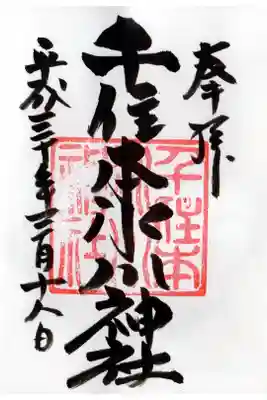 奉拝
千住本氷川神社
平成三十年三月十八日
千住本